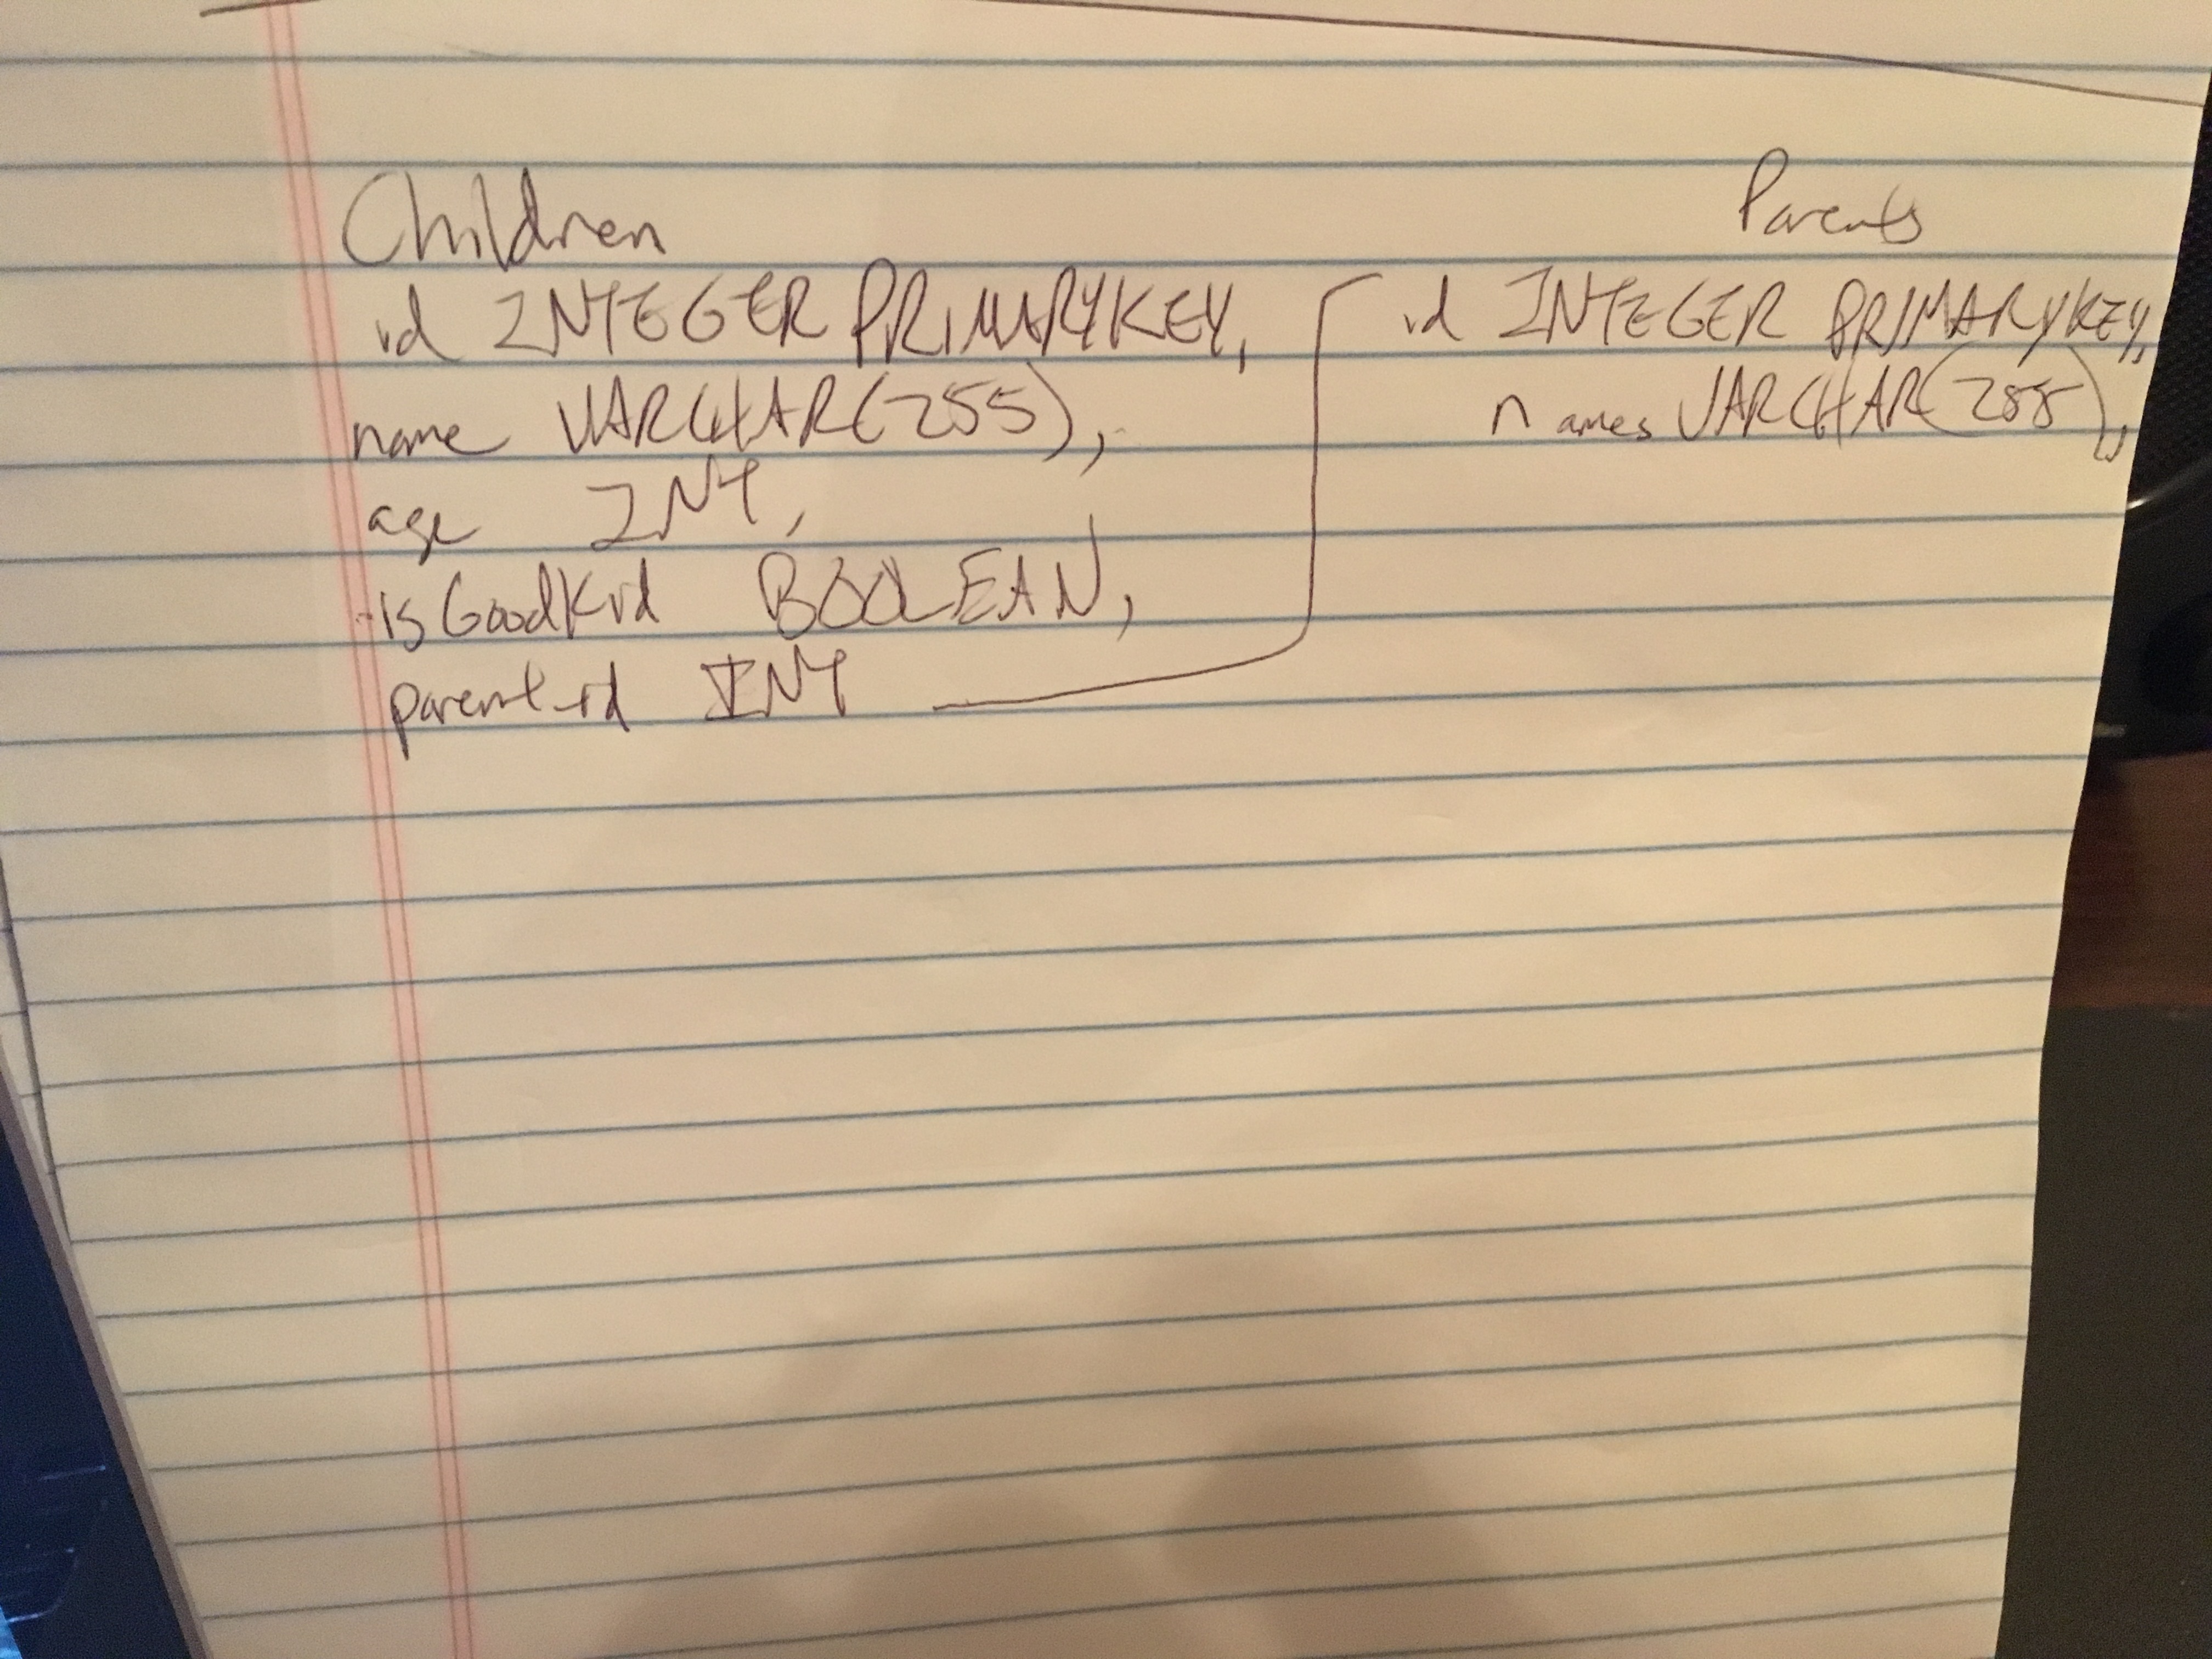 Children
id INTEGER PRIMARY KEY,
name VARCHAR(255),
age INT,
isGoodKid BOOLEAN,
parent_id INT
Parents
id INTEGER PRIMARY KEY,
names VARCHAR(255),